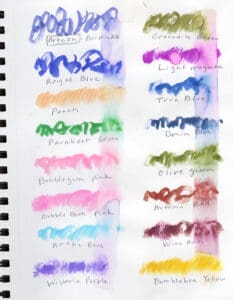 Arteza Periwinkle
Royal Blue
Peach
Parakeet Green
Bubblegum Pink
Bubble Bath Pink
Arctic Blue
Wisteria Purple
Crocodile Green
Light magenta
True Blue
Denim Blue
Olive green
Autumn
Wine Red
Bumblebee Yellow